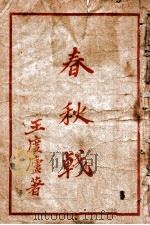 春秋戟
王度廬著